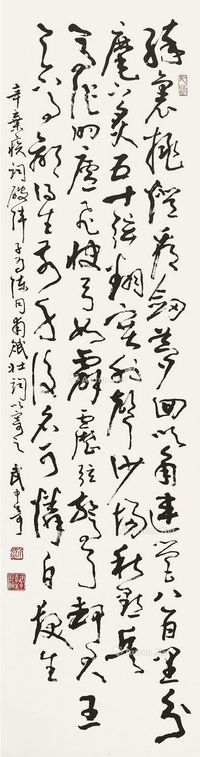 醉裏挑燈看劍夢回吹角連營八百里分
麾下炙五十弦翻塞外聲沙場秋點兵
馬作的盧飛快弓如霹靂弦驚了却君王
天下事贏得生前身後名可憐白髮生
辛棄疾詞破陣子爲陳同甫賦壯詞以寄之 武中奇